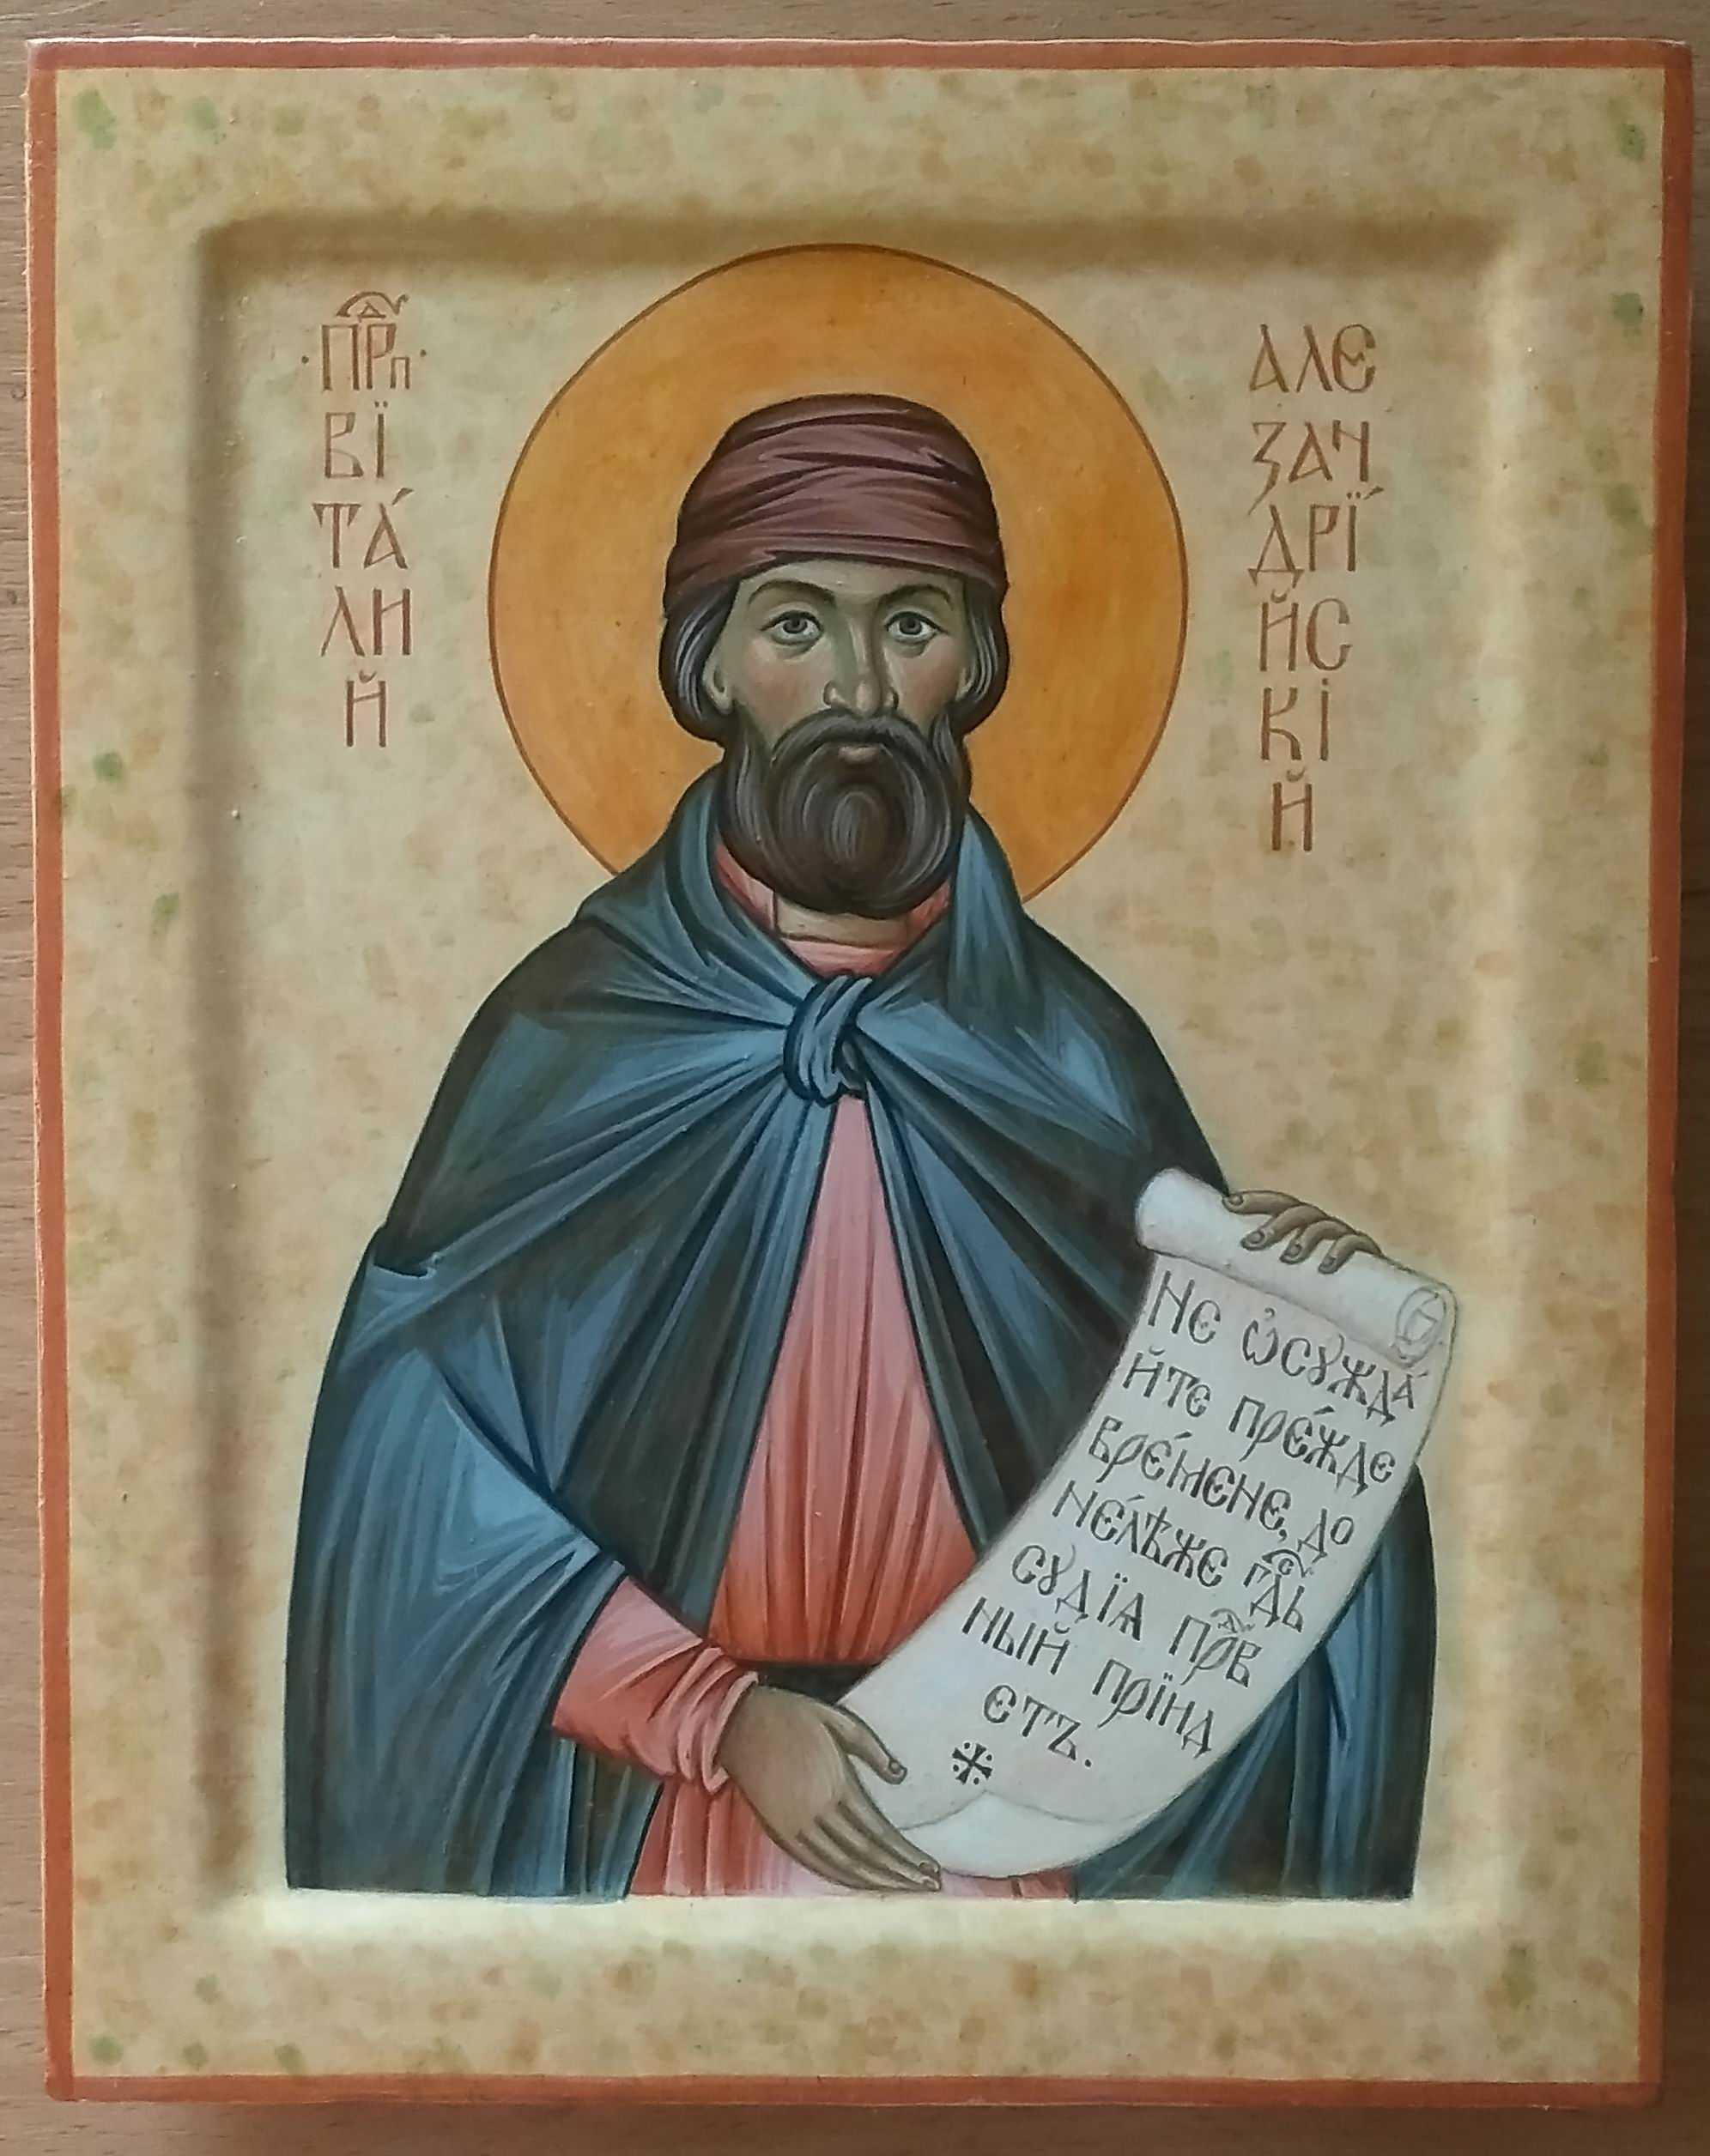 ·ПРⷣ҇п·
ВЇ
ТА́
ЛИ
Й
АЛЕ
ѮАН
ДРЇ́
ЙС
КІ
Й
Не ѡ҆сꙋжда́
йте пре́жде
вре́мене, до
не́лѣже гдⷭ҇ь
сꙋдїѧ прⷣ҇в
ный прїид
етъ.